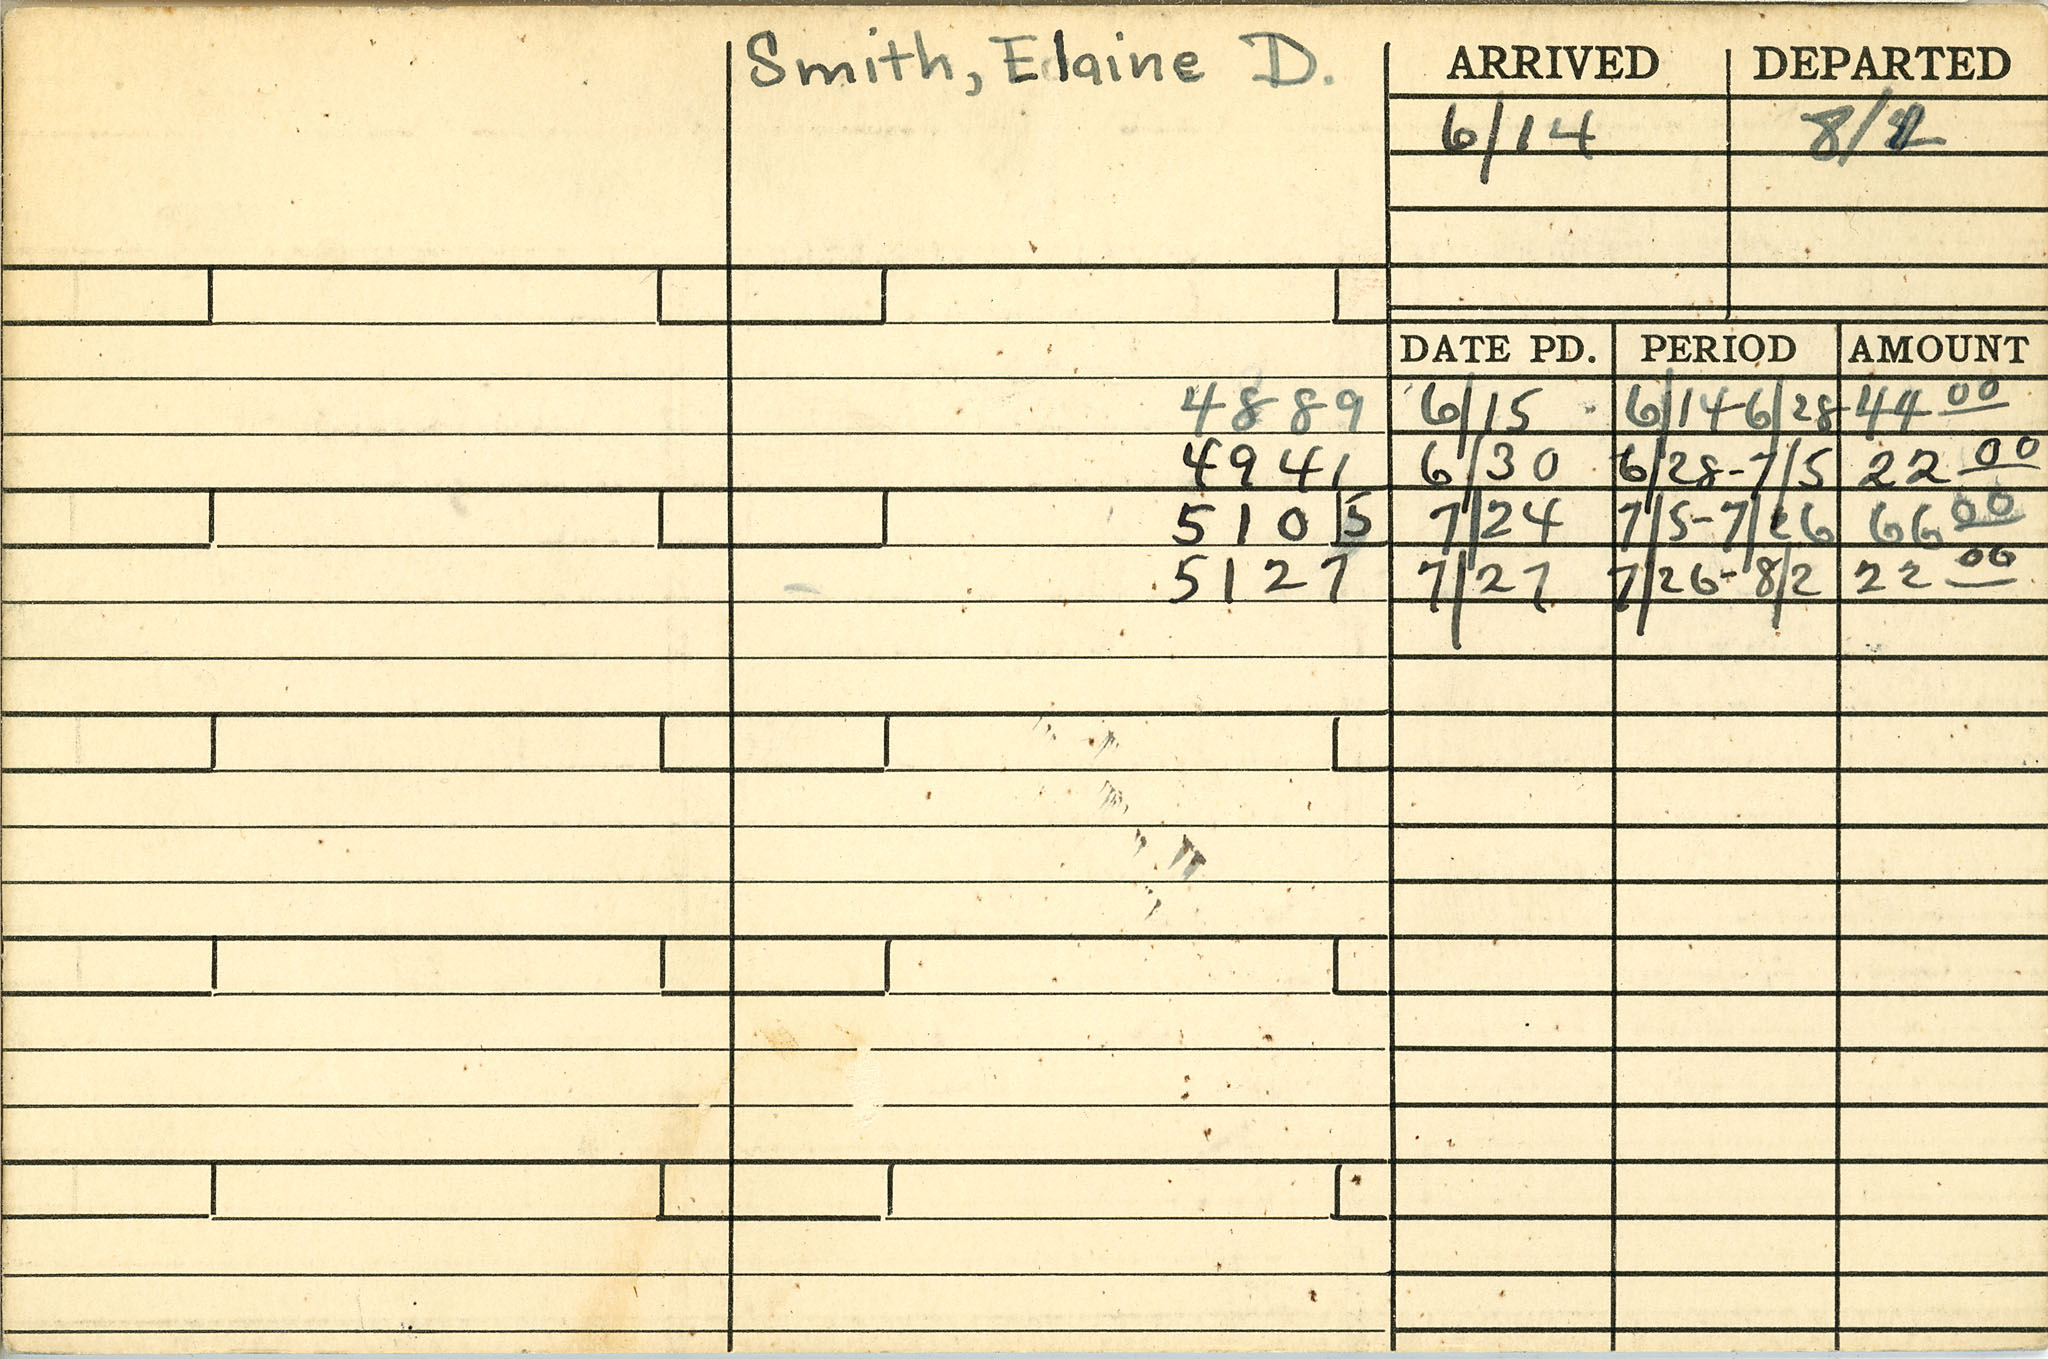 Smith, Elaine D.
ARRIVED DEPARTED
6/14 8/2
DATE PD. PERIOD AMOUNT
4889 6/15 6/14-6/28 44 00
4941 6/30 6/28-7/5 22 00
5105 7/24 7/5-7/26 66 00
5127 7/27 7/26-8/2 22 00